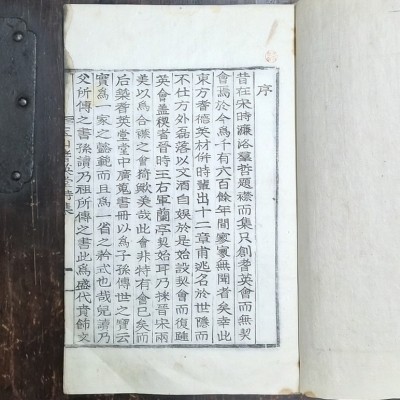 序
昔在宋時濂洛羣哲題襟而集只創耆英會而無契
會焉於今爲千有六百餘年間寥寥無聞者矣幸此
東方耆德英材併時輩出十二章甫逃名於世隱而
不仕方外磊落以文酒自娛於是始設契會而復雖
英會盖稷省晉時王右軍蘭亭契始耳乃揀晉宋兩
美以爲合襟之會猗歟美哉此會非特有會已矣而
后榮耆英堂堂中廣蒐書冊以爲子孫傳世之寶云
寶爲一家之懿範而且爲一省之矜式也哉兒讀乃
父所傳之書孫讀乃祖所傳之書此爲盛代賁飾文